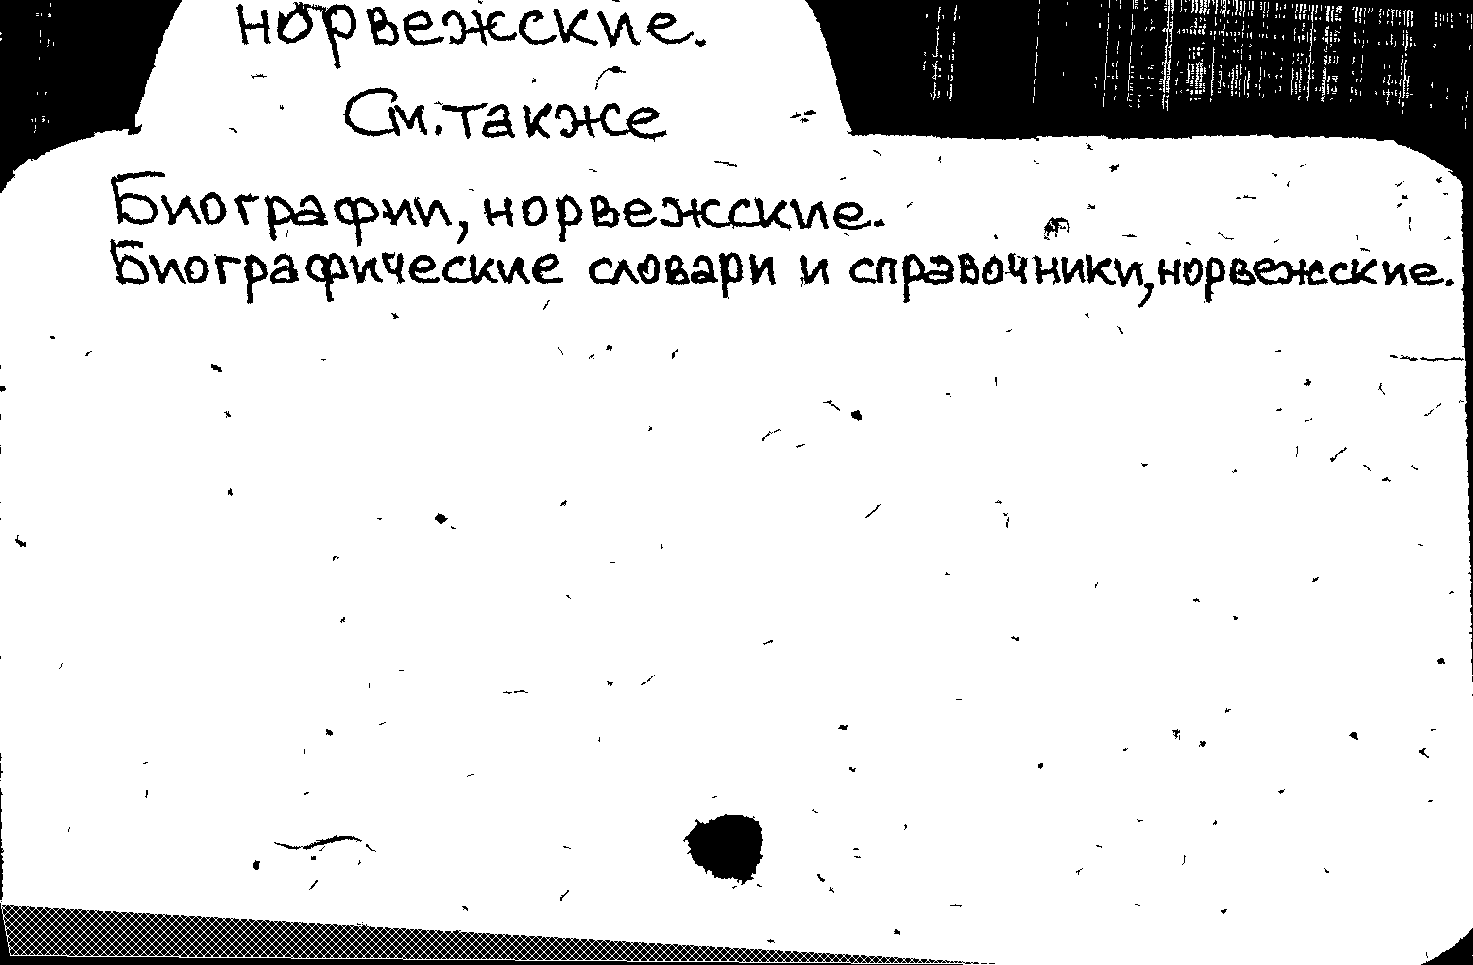 норвежские.
См. также
Биографии, норвежские.
Биографические словари и справочники, норвежские.